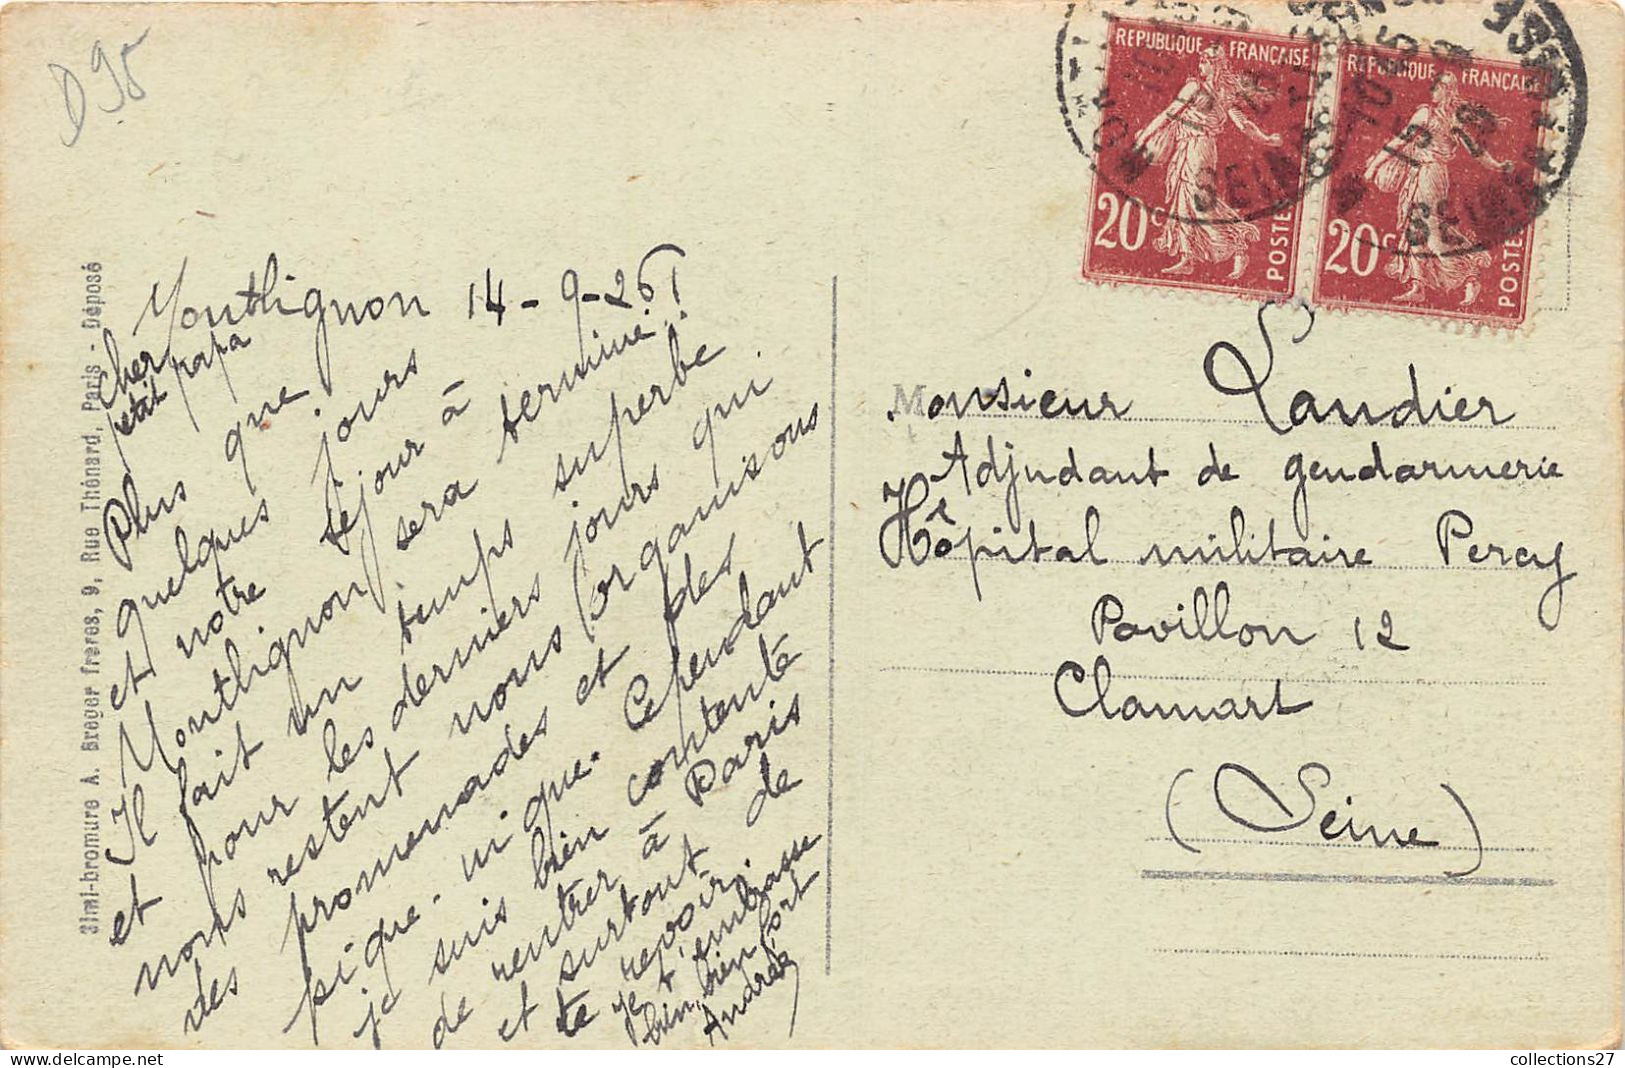 D 95
Simi-bromure A. Breger frères, 9, Rue Thénard, Paris - Déposé
Montlignon 14-9-26
Cher
petit papa
Plus que
quelques jours
et notre séjour à
Montlignon sera terminé.
Il fait un temps superbe
et pour les derniers jours qui
nous restent nous organisons
des promenades et des
pique-nique. Cependant
je suis bien contente
de rentrer à Paris
et surtout de
te revoir.
Je t'embrasse
bien, bien fort
Andrée
REPUBLIQUE FRANÇAISE
20c
POSTES
REPUBLIQUE FRANÇAISE
20c
POSTES
Monsieur Landier
Adjudant de gendarmerie
Hôpital militaire Percy
Pavillon 12
Clamart
(Seine)
collections27